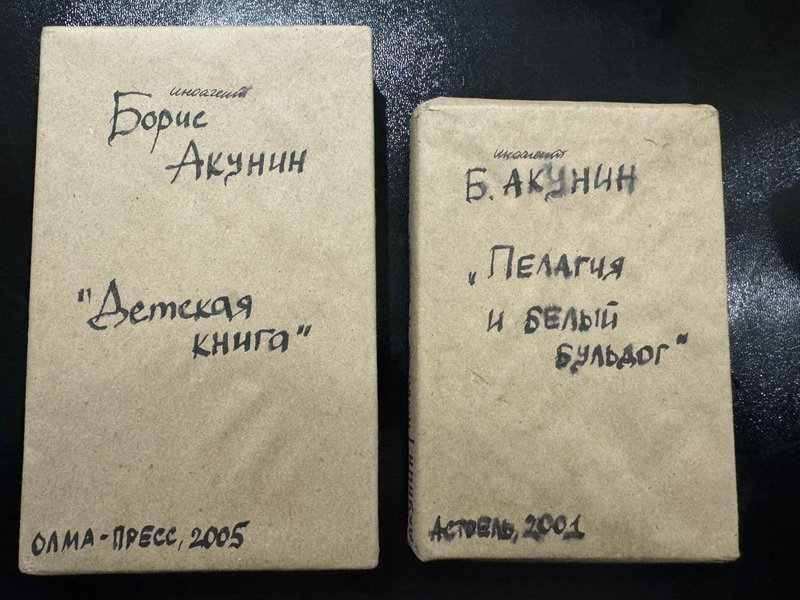 иноагент
Борис
Акунин
"Детская
книга"
ОЛМА-ПРЕСС, 2005
иноагент
Б. АКУНИН
„Пелагия
и белый
бульдог"
Астрель, 2001